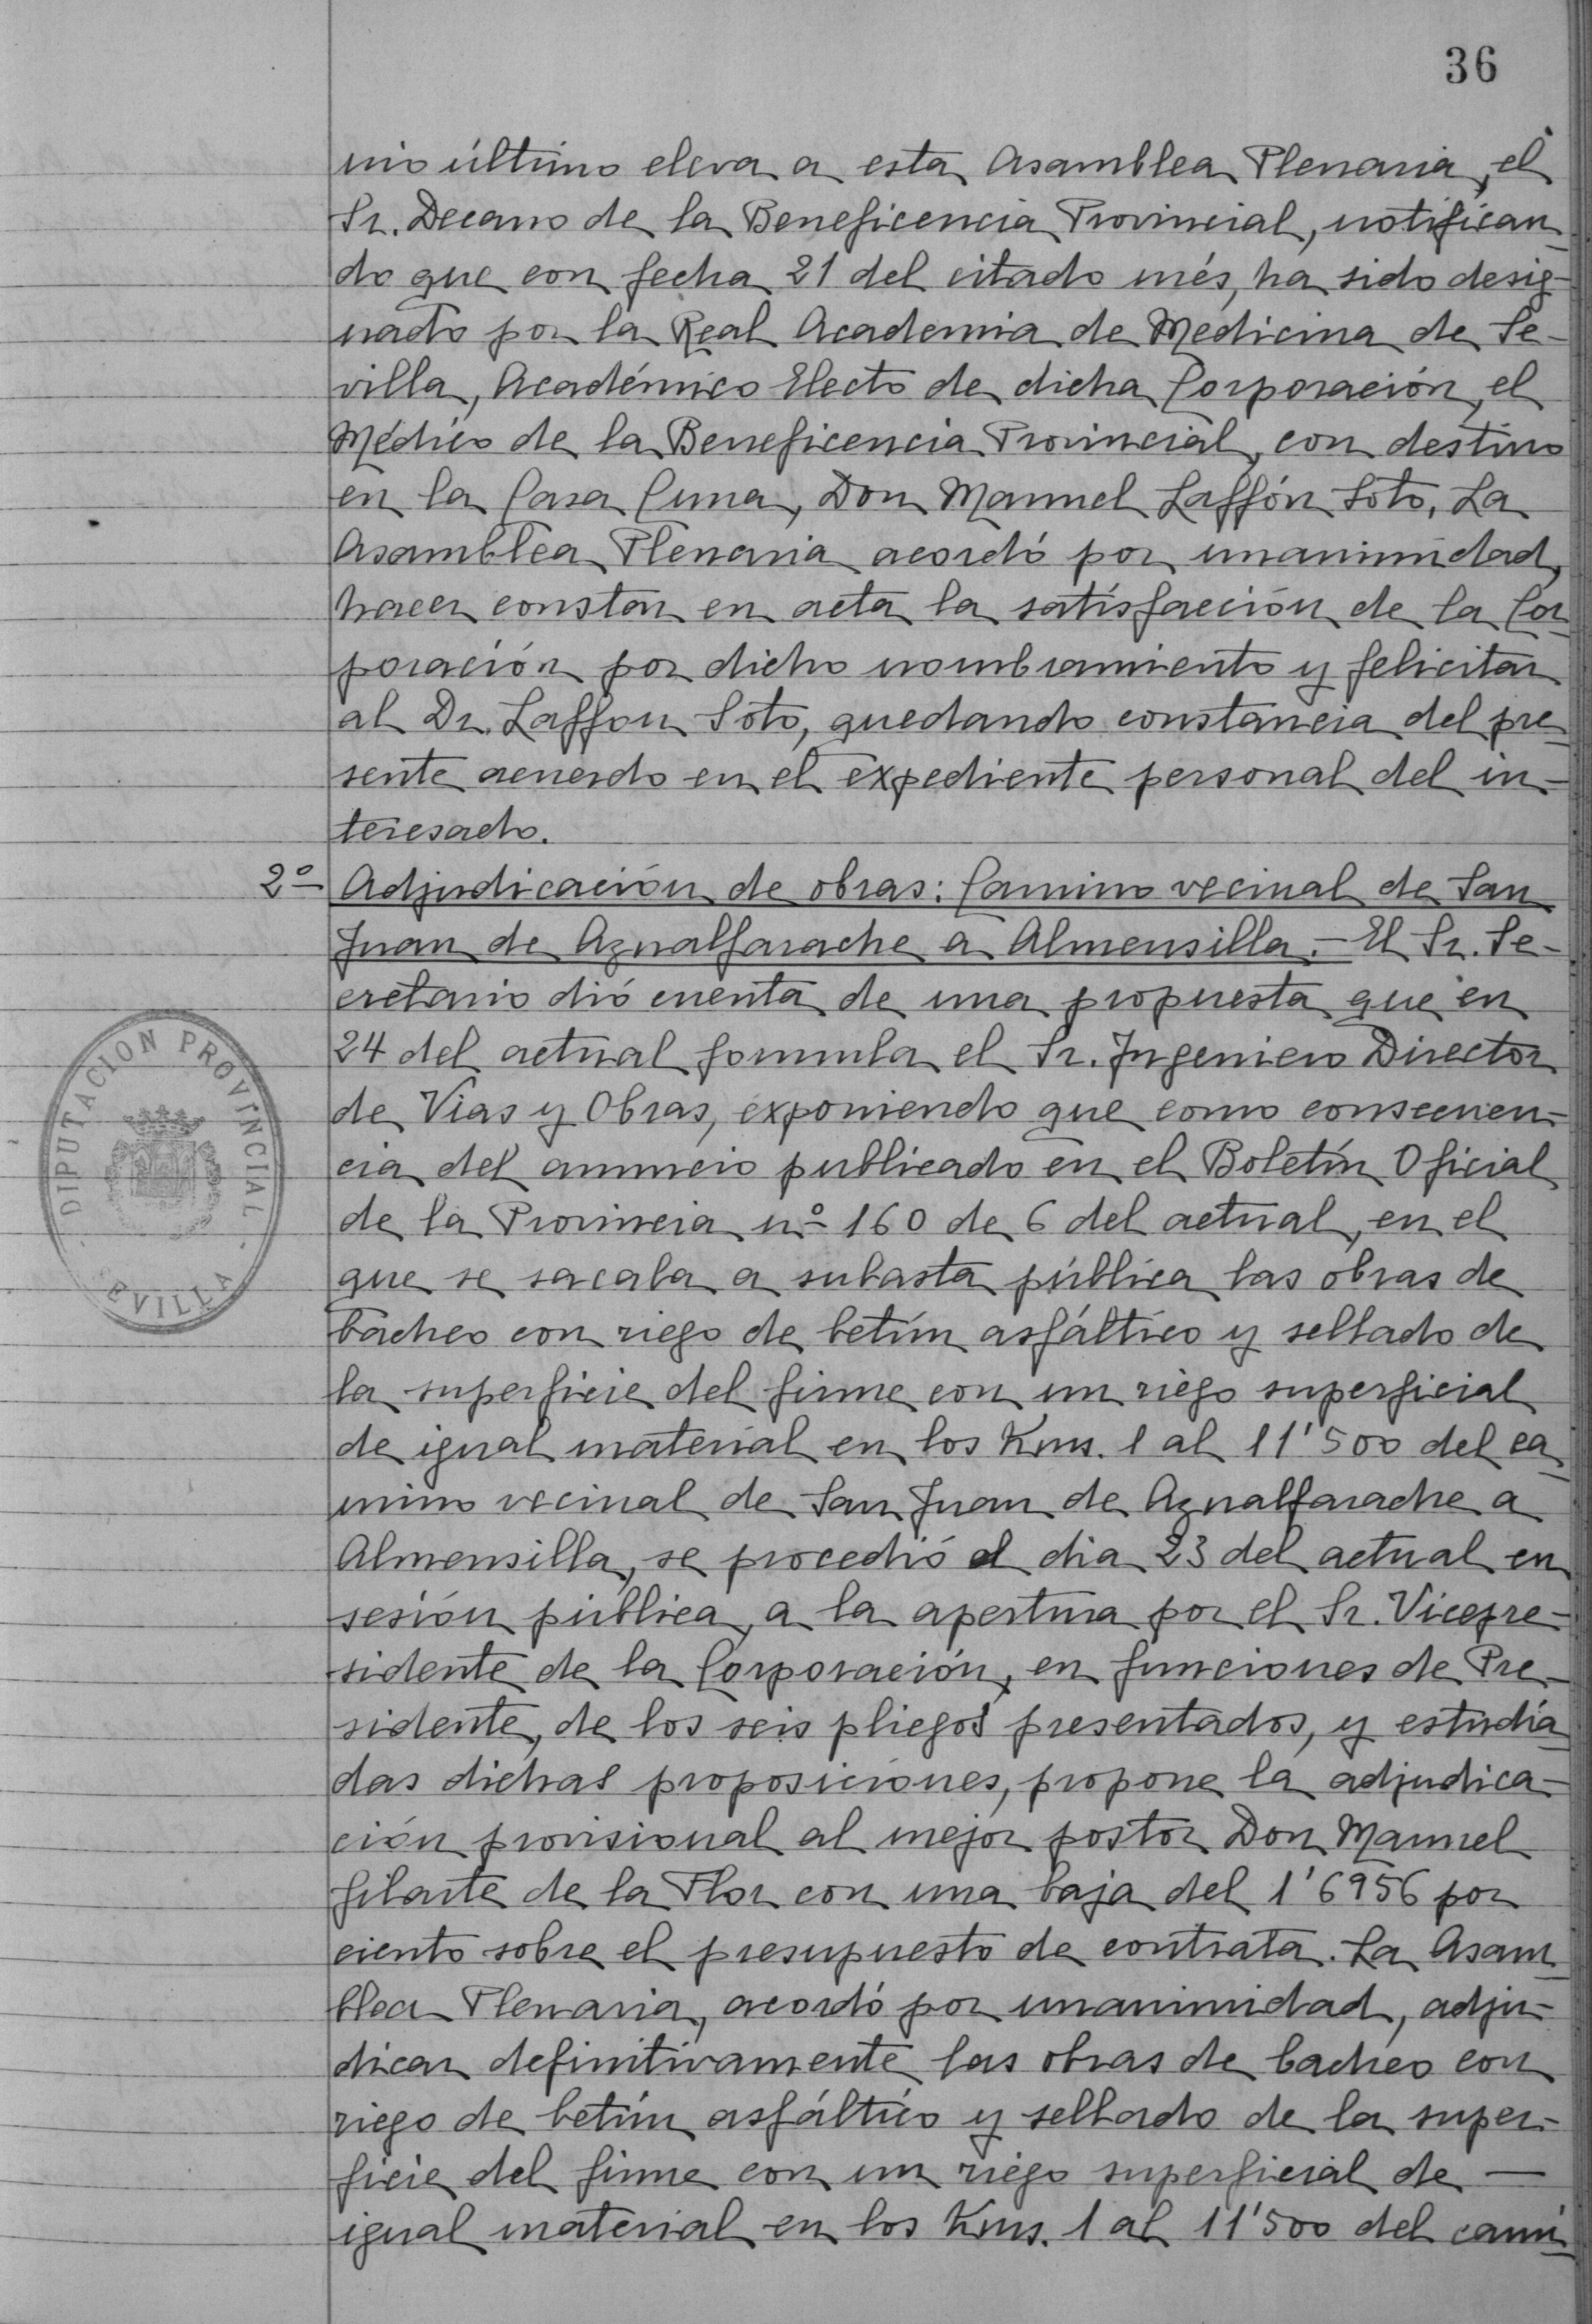 36
nio último eleva a esta Asamblea Plenaria, el
Sr. Decano de la Beneficencia Provincial, notifican-
do que con fecha 21 del citado més, ha sido desig-
nado por la Real Academia de Medicina de Se-
villa, Académico Electo de dicha Corporación, el
Médico de la Beneficencia Provincial, con destino
en la Casa Cuna, Don Manuel Laffón Soto. La
Asamblea Plenaria acordó por unanimidad,
hacer constar en acta la satisfacción de la Cor-
poración por dicho nombramiento y felicitar
al Dr. Laffon Soto, quedando constancia del pre-
sente acuerdo en el expediente personal del in-
teresado.
2º Adjudicación de obras: Camino vecinal de San
Juan de Aznalfarache a Almensilla.- El Sr. Se-
cretario dió cuenta de una propuesta que en
24 del actual formula el Sr. Ingeniero Director
de Vias y Obras, exponiendo que como consecuen-
cia del anuncio publicado en el Boletín Oficial
de la Provincia nº 160 de 6 del actual, en el
que se sacaba a subasta pública las obras de
bacheo con riego de betún asfáltico y sellado de
la superficie del firme con un riego superficial
de igual material en los Kms. 1 al 11'500 del ca-
mino vecinal de San Juan de Aznalfarache a
Almensilla, se procedió el dia 23 del actual en
sesión pública, a la apertura por el Sr. Vicepre-
sidente de la Corporación, en funciones de Pre-
sidente, de los seis pliegos presentados, y estudia-
das dichas proposiciones, propone la adjudica-
ción provisional al mejor postor Don Manuel
Gilarte de la Flor con una baja del 1'6956 por
ciento sobre el presupuesto de contrata. La Asam-
blea Plenaria, acordó por unanimidad, adju-
dicar definitivamente las obras de bacheo con
riego de betún asfáltico y sellado de la super-
ficie del firme con un riego superficial de —
igual material en los Kms. 1 al 11'500 del cami-
DIPUTACION PROVINCIAL
EVILLA